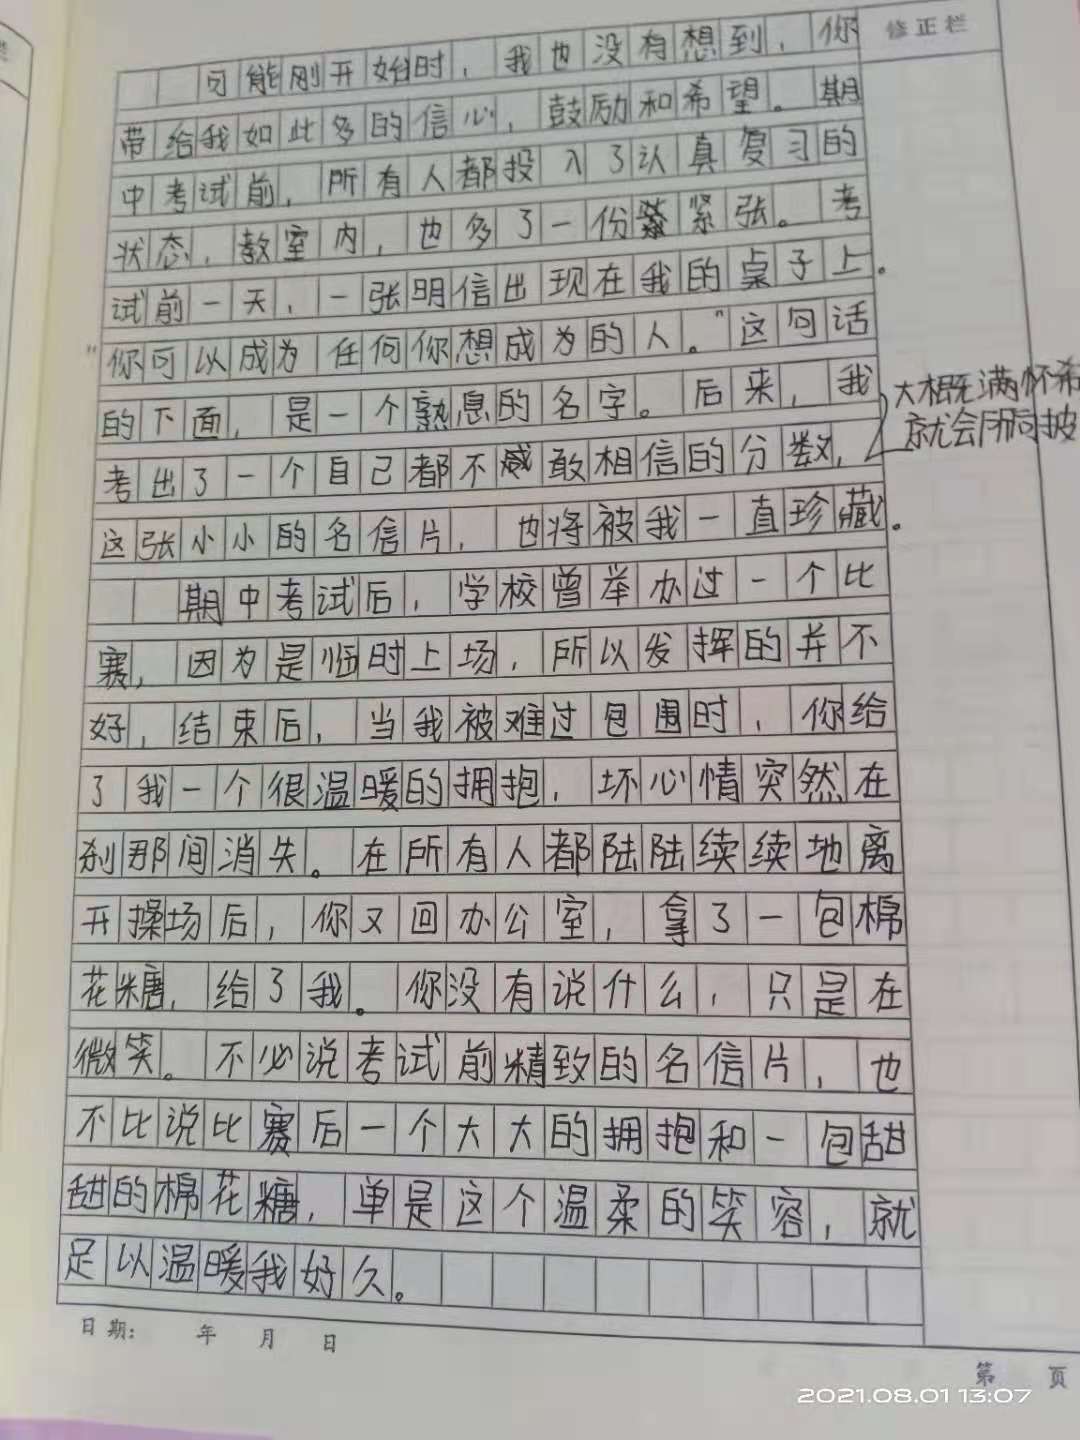 修正栏
可能刚开始时，我也没有想到，你
带给我如此多的信心，鼓励和希望。期
中考试前，所有人都投入了认真复习的
状态，教室内，也多了一份紧张。考
试前一天，一张明信出现在我的桌子上。
"你可以成为任何你想成为的人。"这句话
的下面，是一个熟息的名字。后来，我
大概无满怀希
就会所向披
考出了一个自己都不敢相信的分数，
这张小小的名信片，也将被我一直珍藏。
期中考试后，学校曾举办过一个比
赛，因为是临时上场，所以发挥的并不
好，结束后，当我被难过包围时，你给
了我一个很温暖的拥抱，坏心情突然在
刹那间消失。在所有人都陆陆续续地离
开操场后，你又回办公室，拿了一包棉
花糖，给了我。你没有说什么，只是在
微笑。不必说考试前精致的名信片，也
不比说比赛后一个大大的拥抱和一包甜
甜的棉花糖，单是这个温柔的笑容，就
足以温暖我好久。
日期： 年 月 日
第 页
2021.08.01 13:07